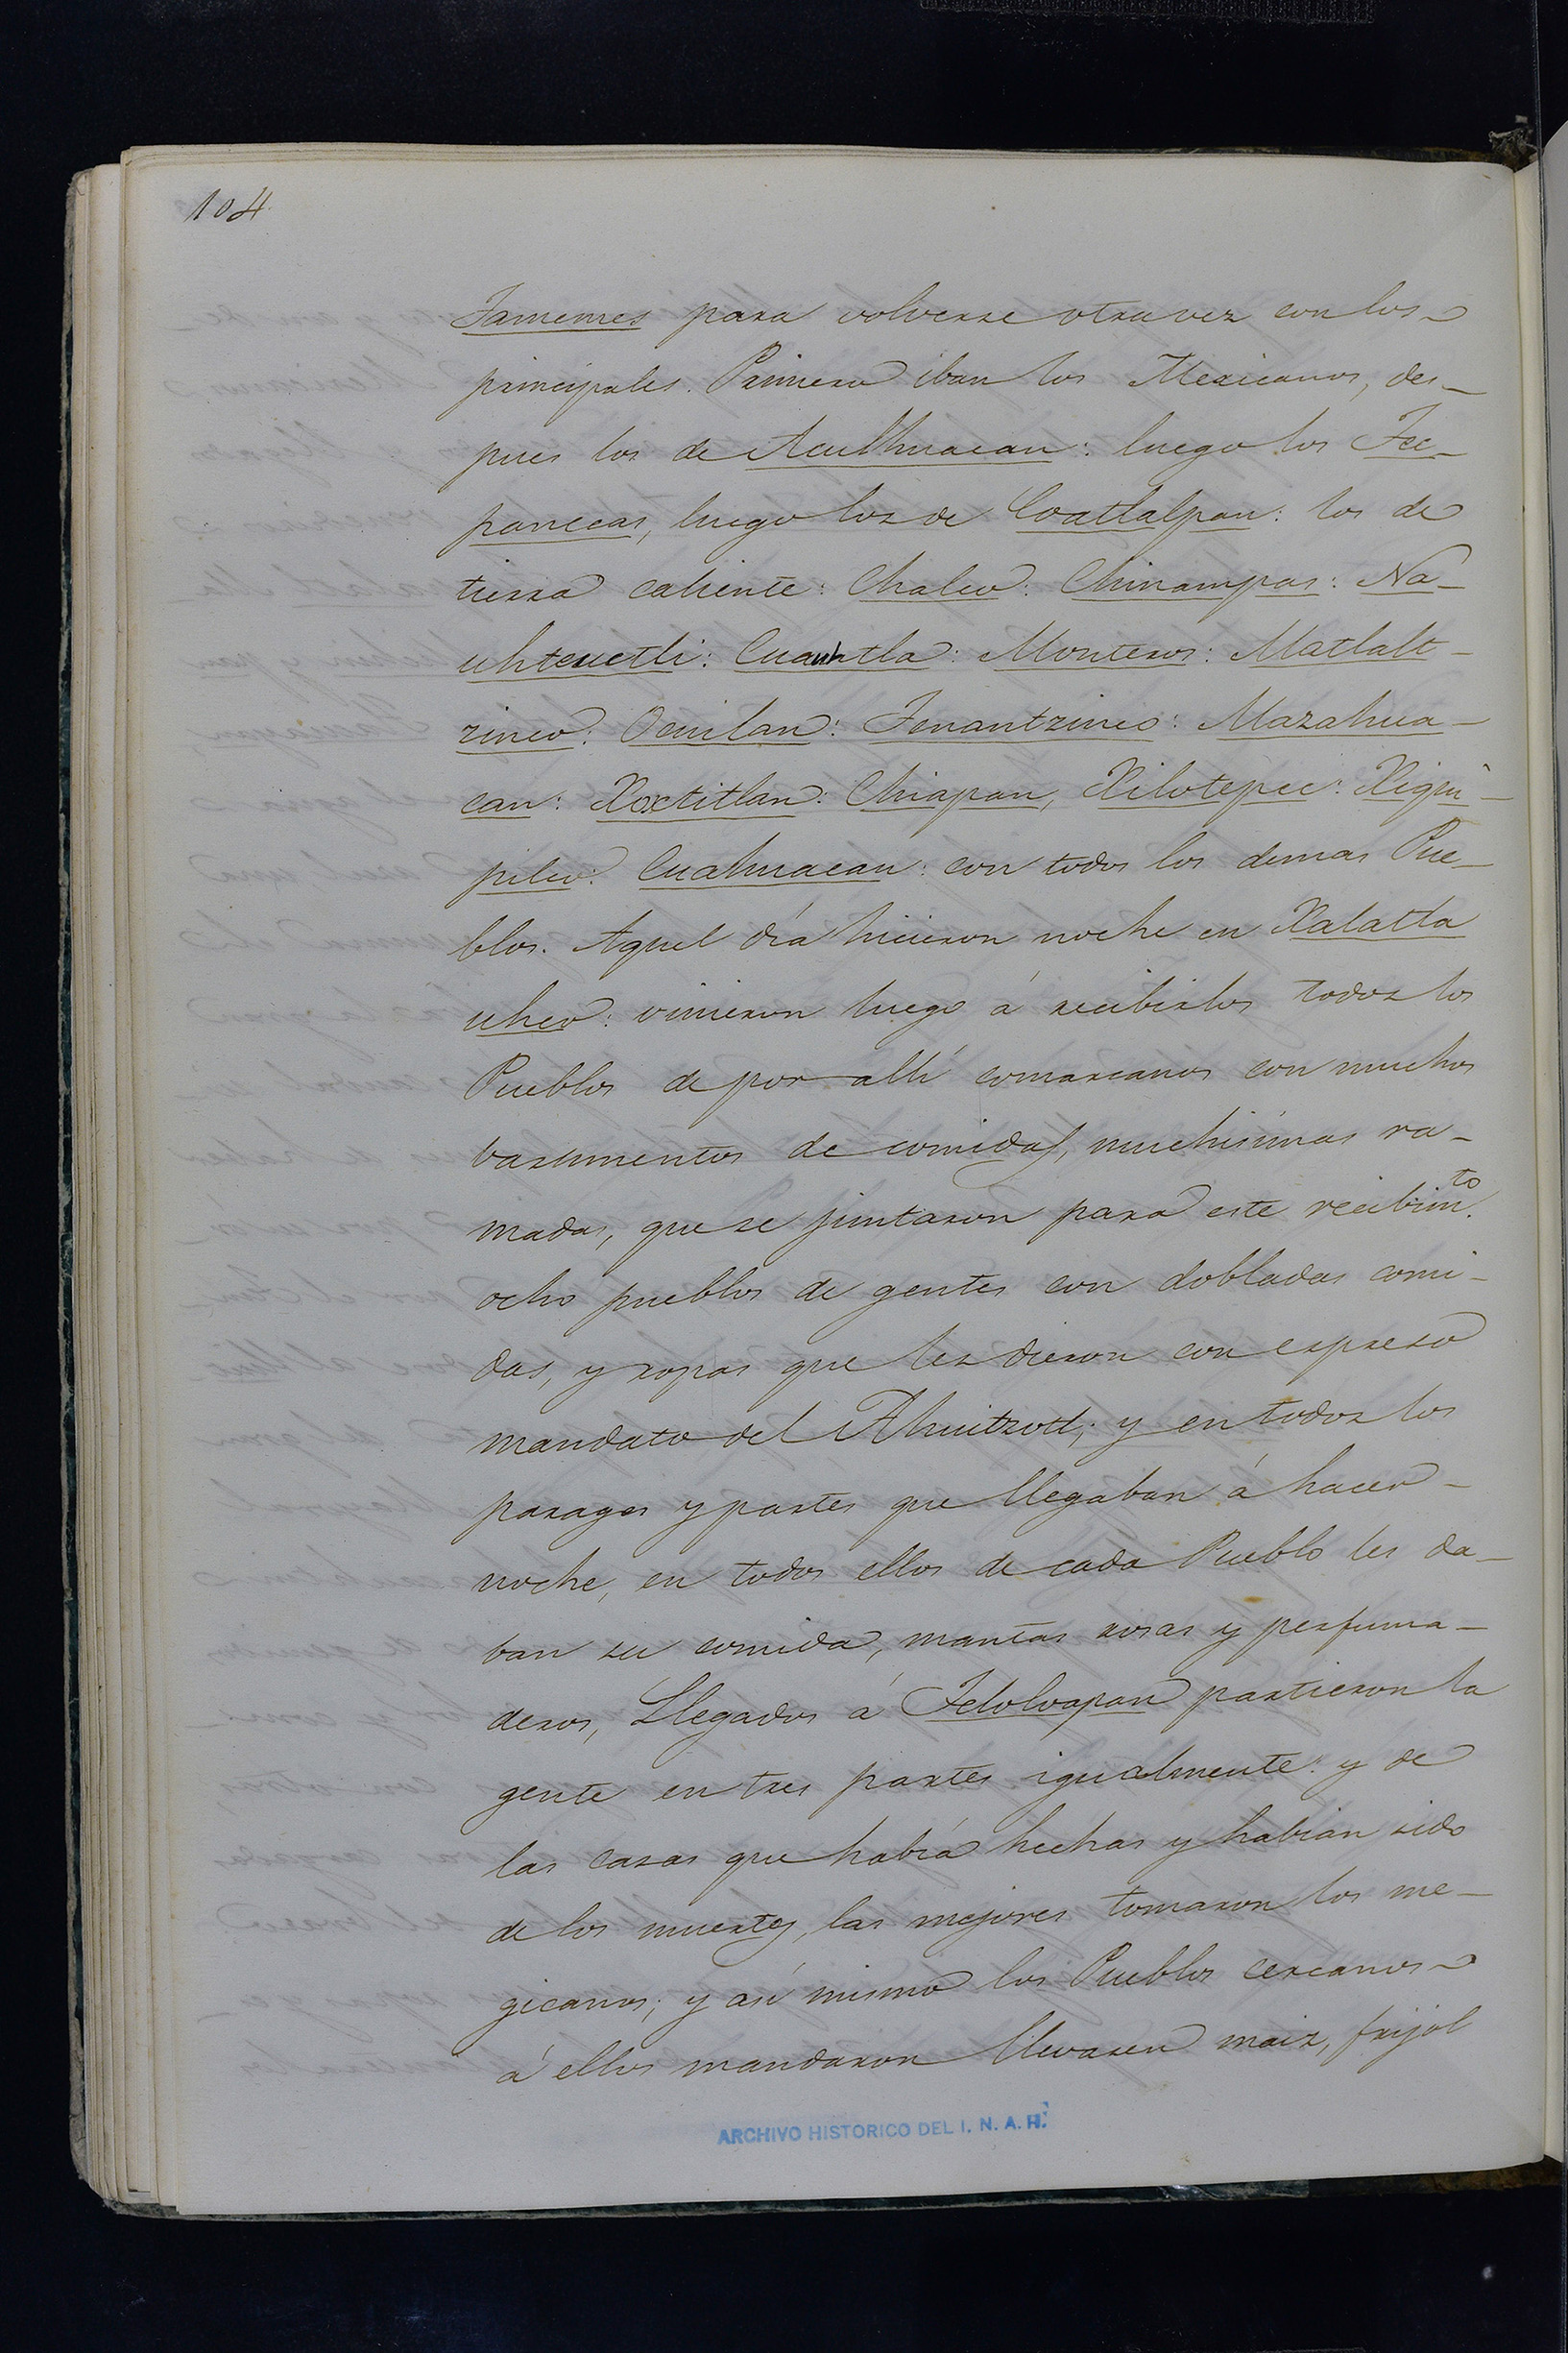 104
Tamemes para volverse otra vez con los
principales. Primero iban los Mexicanos, des-
pues los de Aculhuacan: luego los Tec-
panecas, luego los de Coatlalpan: los de
tierra caliente: Chalco: Chinampas: Na-
uhteuctli: Cuauhtla: Monteros: Matlalt-
zinco: Ocuilan: Tenantzinco: Mazahua-
can: Xoctitlan: Chiapan, Xilotepec: Xiqui-
pilco: Cuahuacan: con todos los demas Pue-
blos. Aquel día hicieron noche en Xalatla
uhco: vinieron luego á recibirlos todos los
Pueblos de por allí comarcanos con muchos
bastimentos de comidas, muchisimas ra-
madas, que se juntaron para este recibim.to
ocho pueblos de gentes con dobladas comi-
das, y ropas que les dieron con espreso
mandato del Ahuitzotl; y en todos los
parages y partes que llegaban á hacer
noche, en todos ellos de cada Pueblo les da-
ban su comida, mantas rosas y perfuma-
deros, Llegados á Teloloapan partieron la
gente en tres partes igualmente: y de
las casas que había hechas y habian sido
de los muertos, las mejores tomaron los me-
gicanos; y así mismo los Pueblos cercanos
á ellos mandaron llevasen maiz, frijol
ARCHIVO HISTORICO DEL I. N. A. H.